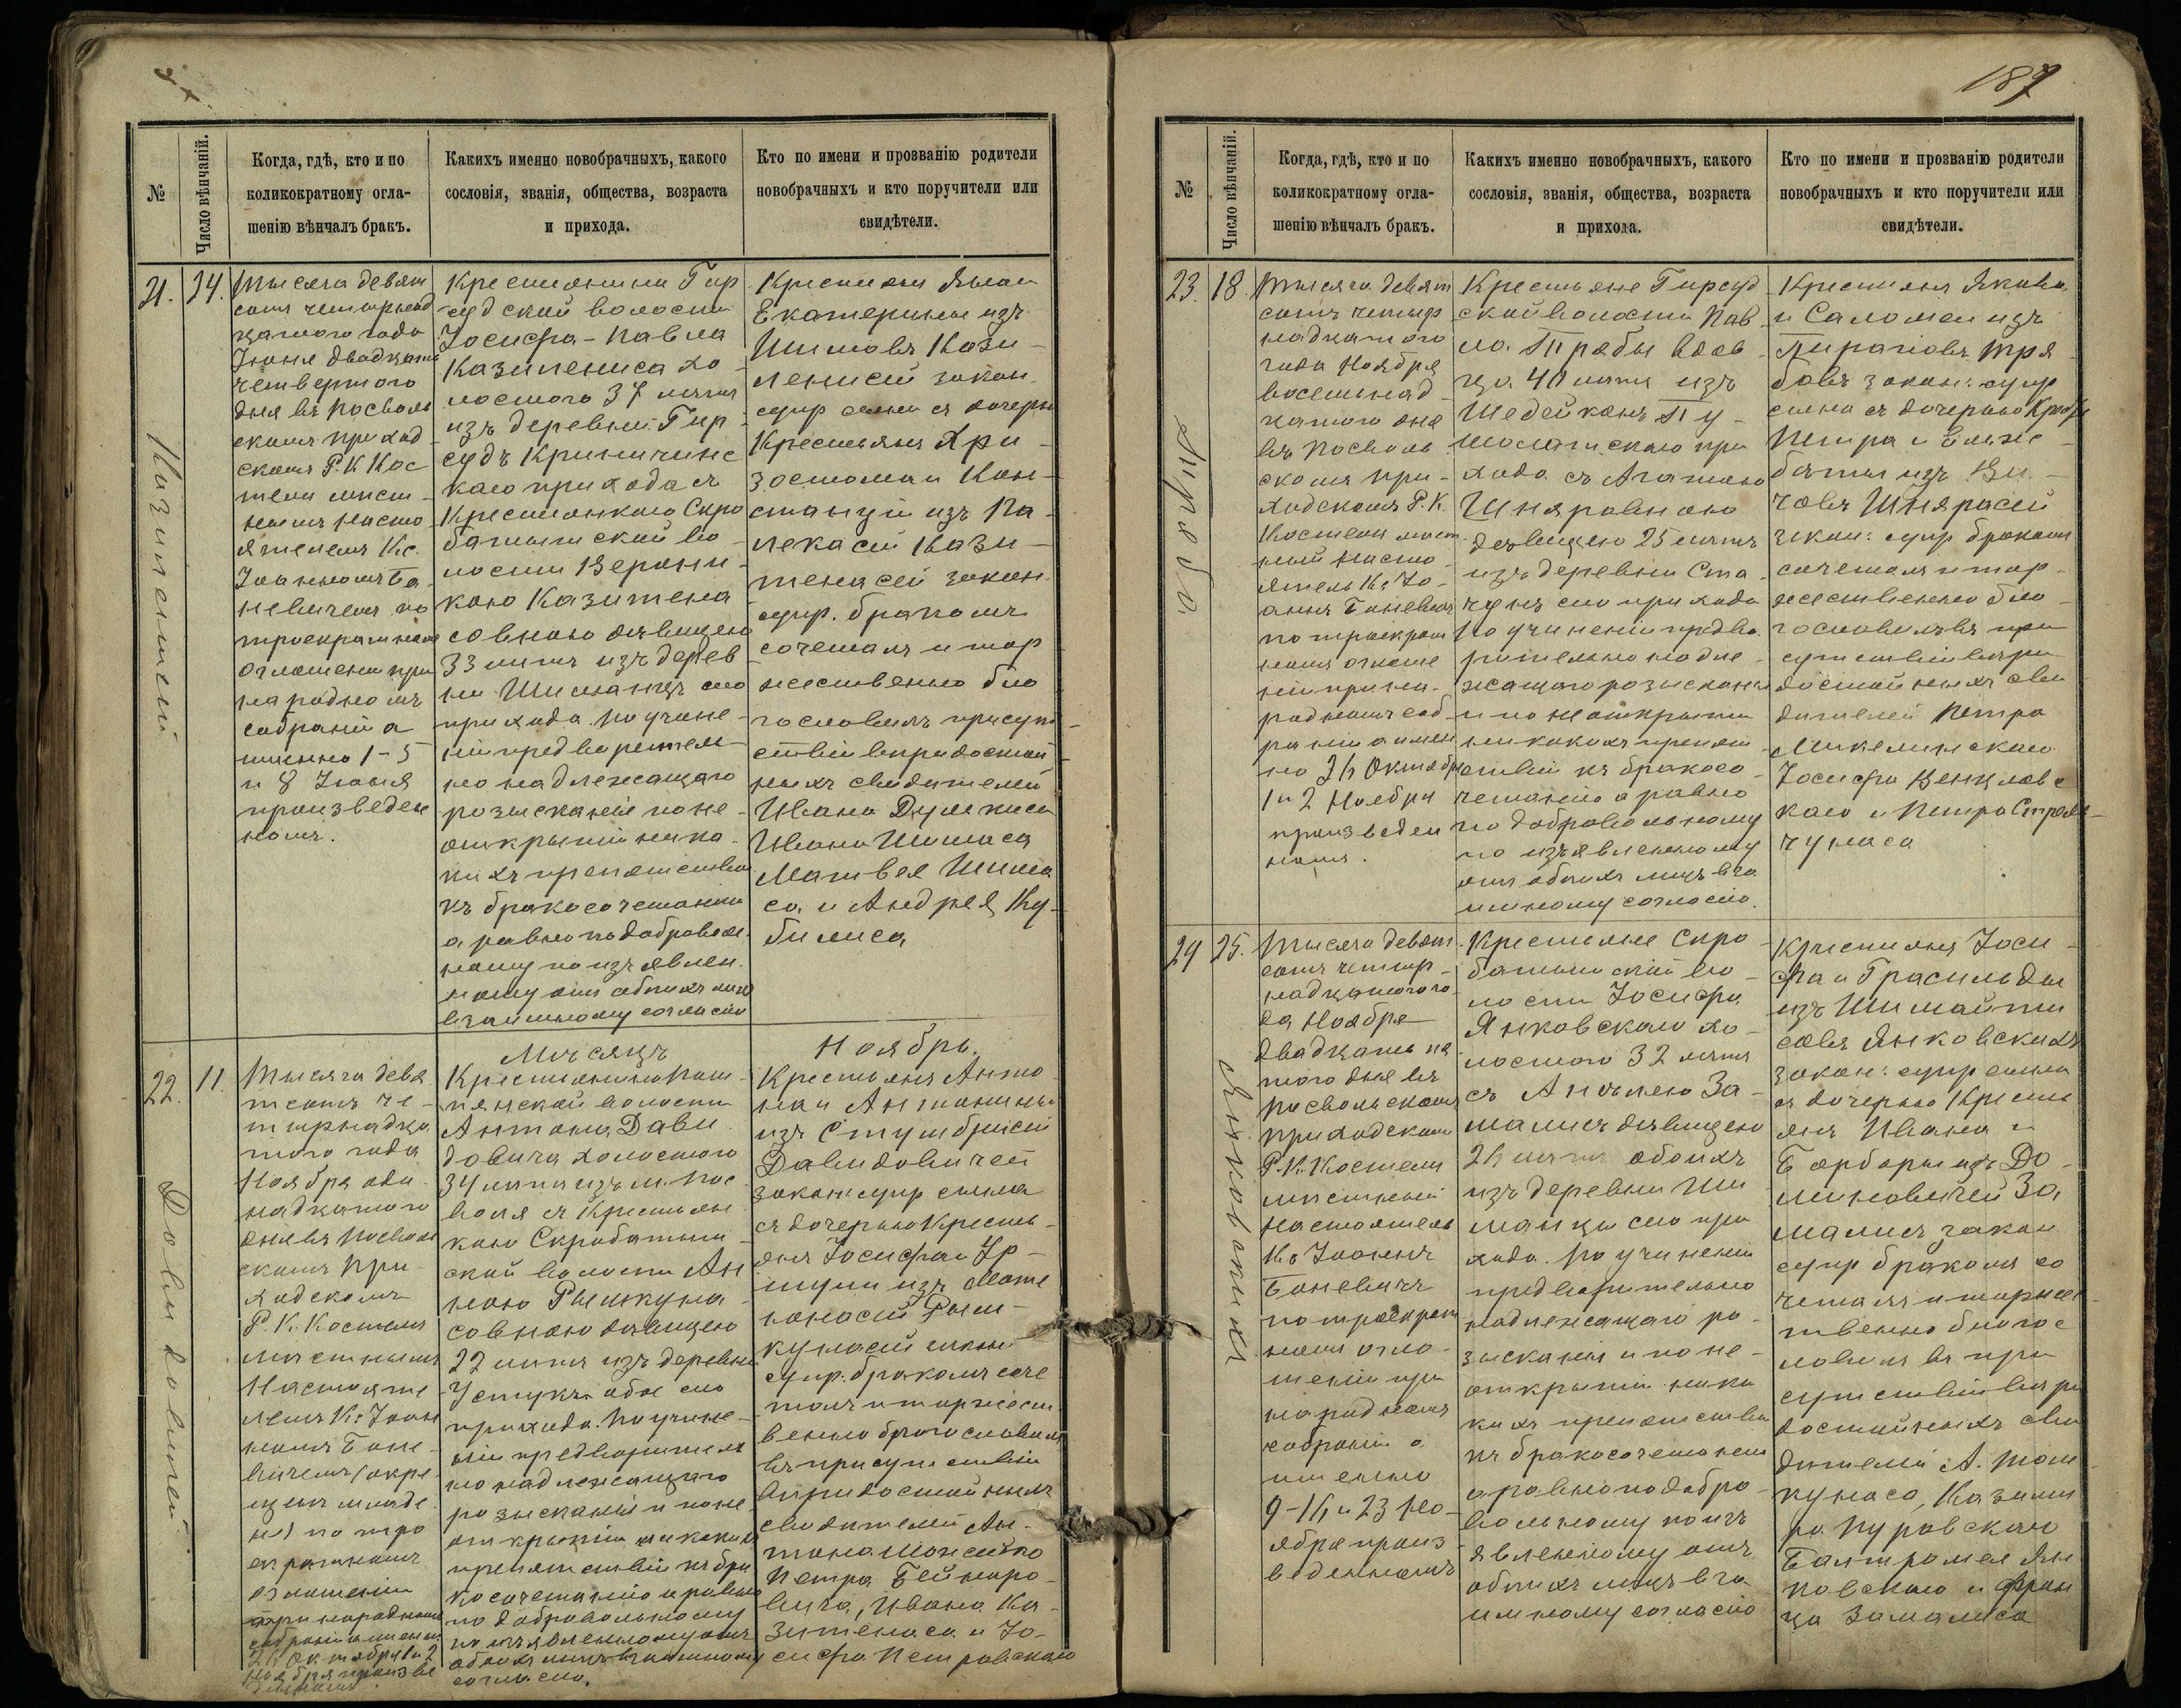 187
№
Число вѣнчаній.
Когда, гдѣ, кто и по
коликократному огла-
шенію вѣнчалъ бракъ.
Какихъ именно новобрачныхъ, какого
сословія, званія, общества, возраста
и прихода.
Кто по имени и прозванію родители
новобрачныхъ и кто поручители или
свидѣтели.
21.
24.
Тысяча девят
сотъ четырнад
цатого года
Іюня двадцать
четвертого
дня въ Посволь
скомъ приход
скомъ Р. К. Кос
телѣ мѣст-
нымъ насто
ятелемъ Кс.
Іоанномъ Ба
невичемъ по
троекратномъ
оглашеніи при
народномъ
собраніи а
именно 1-5
и 8 Іюня
произведен
номъ.
Крестьянина Гир
судской волости
Іосифа-Павла
Казилениса хо
лостого 37 лѣтъ
изъ деревни Гир
судъ Криничинс
каго прихода съ
Крестьянкою Скро
батышской во
лости Верони
кою Казитена
совною дѣвицею
33 лѣтъ изъ дерев
ни Шиманцъ сего
прихода. По учине-
ніи предварительн
но надлежащаго
розысканія по не-
открытіи ника-
кихъ препятствій
къ бракосочетанію
а равно по доброволь
ному по изъявлен.
ному отъ обоихъ лицъ
взаимному согласію
Крестьянъ
Екатерины изъ
Шимовъ Кази-
ленисей закон.
супр сына съ дочерью
Крестьянъ Хри-
зостома и Кон-
станціи изъ Па
лекасей Кази-
тенасей закон.
супр. бракомъ
сочеталъ и тор
жественно бла
гословилъ присут
ствіи вѣридостой
ныхъ свидѣтелей
Ивана
Ивана Шимаса
Матвея Шима
са и Андрея Ку-
билиса
Казиленисей
Мѣсяцъ
Ноябрь.
22.
11.
Тысяча девя
тсотъ че-
тырнадца
того года
Ноября оди
надцатого
дня въ Посволь
скомъ при
ходскомъ
Р. К. Костелѣ
мѣстнымъ
Настояте
лемъ Кс. Іоан
номъ Бане-
вичемъ
по тро
екратномъ
оглашеніи
при народномъ
собраніи а именно
26 Октября 1 и 2
Ноября произве
деннымъ.
Крестьянина
волости
Антона Дави
довича холостого
34 лѣтъ изъ м. Пос
воля съ Крестьян
кою Скробатыш
ской волости Ан
ною Рышкуна
совною дѣвицею
22 лѣтъ изъ деревни
Устукъ обое сего
прихода. По учине-
ніи предварительн
но надлежащаго
розысканія и по не
открытіи никакихъ
препятствій къ бра
косочетанію а равно
по добровольному
по изъявленному отъ
обоихъ лицъ взаимному
согласію.
Крестьянъ Анто
на и Антонины
изъ Стумбрисей
Давидовичей
закон супр сына
съ дочерью Кресть-
янъ Іосифа и Ур-
шули изъ
Рыш-
кунасей закон
супр. бракомъ соче
талъ и торжест
венно благословилъ
въ присутствіи
вѣридостойныхъ
свидѣтелей Ан-
тона
Петра Бейноро
вича, Ивана Ка
зитенаса и Іо-
сифа Петровскаго
Давидовичей
№
Число вѣнчаній.
Когда, гдѣ, кто и по
коликократному огла-
шенію вѣнчалъ бракъ.
Какихъ именно новобрачныхъ, какого
сословія, званія, общества, возраста
и прихода.
Кто по имени и прозванію родители
новобрачныхъ и кто поручители или
свидѣтели.
23.
18.
Тысяча девят
сотъ четыр
надцатого
года Ноября
восемнад
цатого дня
въ Посволь
скомъ при-
ходскомъ Р. К.
Костелѣ мѣст
ный насто
ятель Кс. Іо-
аннъ Баневичъ
по троекрат
номъ оглаше
ніи при на-
родномъ соб
раніи а имен
но 26 Октября
1 и 2 Ноября
произведен
номъ.
Крестьяне Гирсуд
ской волости Пав
ла Трябы вдов
ца 40 лѣтъ изъ
Шедейконъ Пу-
шолатскаго при
хода съ Агатою
Шняровною
дѣвицею 25 лѣтъ
изъ деревни Ста
чунъ сего прихода
По учиненіи предва
рительно надле
жащаго розысканія
и по не открытіи
никакихъ препят
ствій къ бракосо
четанію а равно
по добровольному
по изъявленному
отъ обоихъ лицъ вза
имному согласію.
Крестьянъ Якова
и Саломеи изъ
Тря
бовъ закон. супр
сына съ дочерью Крест
Петра и Ельже
беты изъ
човъ Шнярасей
закон. супр бракомъ
сочеталъ и тор
жественно бла
гословилъ въ при
сутствіи вѣри
достойныхъ сви
дѣтелей Петра
Микелинскаго
Іосифа Венцлавс
каго и Петра
чунаса
24
25.
Тысяча девят
сотъ четыр-
надцатого го
да Ноября
двадцать пя
того дня въ
Посвольскомъ
приходскомъ
Р. К. Костелѣ
мѣстный
настоятель
Кс Іоаннъ
Баневичъ
по троекрат
номъ огла-
шеніи при
народномъ
собраніи а
именно
9-16 и 23 Но
ября произ
веденномъ
Крестьяне Скро
батышской во
лости Іосифа
Янковскаго хо
лостого 32 лѣтъ
съ Анелею За
малисъ дѣвицею
26 лѣтъ обоихъ
изъ деревни Ши
манцы сего при
хода. По учиненіи
предварительно
надлежащаго ро
зысканія и по не-
открытіи ника
кихъ препятствій
къ бракосочетанію
а равно по добро
вольному по изъ
явленному отъ
обоихъ лицъ вза
имному согласію
Крестьянъ Іоси
фа и Грасильды
изъ Шимайти
совъ Янковскихъ
закон. супр сына
съ дочерью Кресть
янъ Ивана и
Барбары изъ До
миновичей За
малисъ закон
супр бракомъ со
четалъ и торжес
твенно благос
ловилъ въ при
сутствіи вѣри
достойныхъ сви
дѣтелей А.
кунаса, Казими
ра Пуровскаго
Балтромея Ян
ковскаго и Фран
ца Замалиса
Янковскихъ